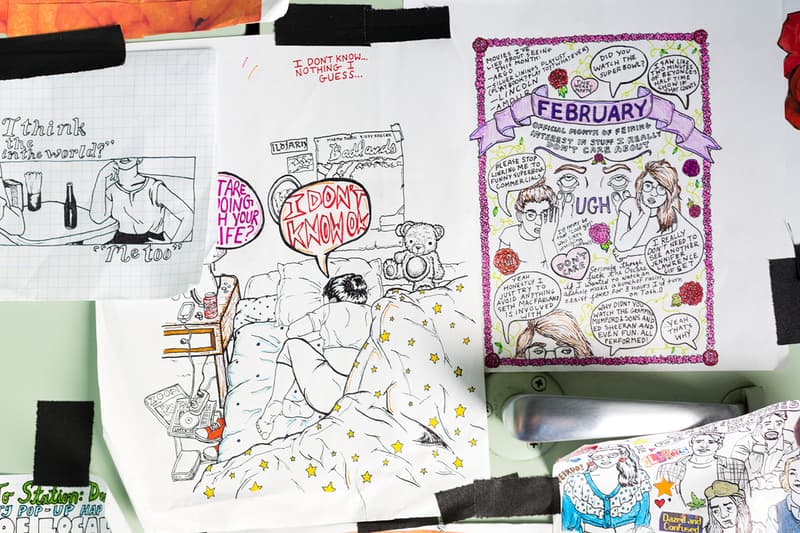 I think
the
in the world?"
"Me too"
I DONT KNOW...
NOTHING I
GUESS...
ILDJARN
Badlands
ARE
OING
H YOUR
LIFE?
I DON'T
KNOW OK
MOVIES I'VE
LIED ABOUT SEEING
THIS MONTH:
-ARGO
-LINCOLN
-AMOUR
DID YOU
WATCH THE
SUPERBOWL?
I SAW LIKE
2 MINUTES
OF BEYONCE'S
HALF TIME
SHOW IF
THAT COUNTS
FEBRUARY
OFFICIAL MONTH OF FEIGNING
INTEREST IN STUFF I REALLY
DON'T CARE ABOUT
PLEASE STOP
LINKING ME TO
FUNNY SUPERBOWL
COMMERCIALS
UGH
DON'T
CARE
I REALLY
DON'T NEED TO
SEE ANOTHER
JENNIFER
LAWRENCE
YEAH
HONESTLY I
JUST TRY TO
AVOID ANYTHING
SETH MACFARLANE
IS INVOLVED
WITH
WHY DIDN'T YOU
WATCH THE GRAMMYS?
MUMFORD & SONS AND
ED SHEERAN AND
EVEN FUN. ALL
PERFORMED!
YEAH
THAT'S
WHY
To Station: Du
TY POP-UP HAP
OF LOCAL
WEIRDO!
Dazed and
Confused